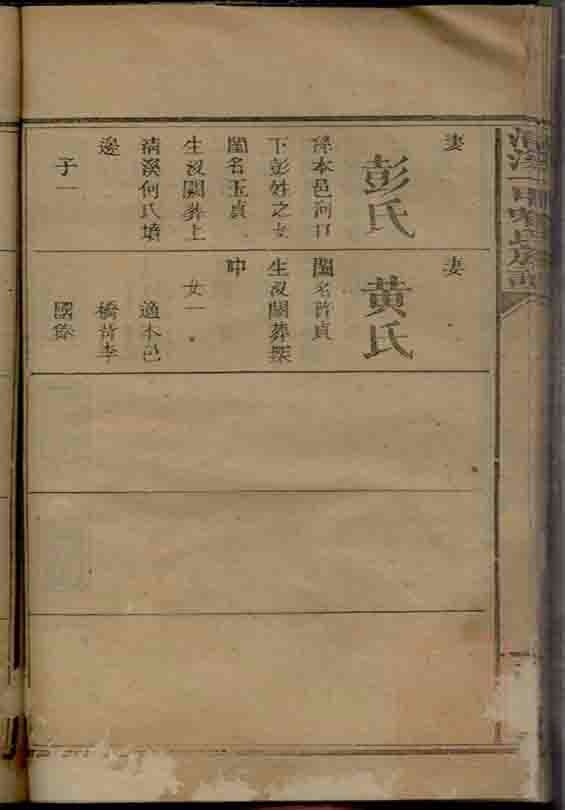 妻
彭氏
係本邑河口
下彭姓之女
閨名玉貞
生沒闕葬上
清溪何氏墳
邊
子一
妻
黄氏
閨名首貞
生沒闕葬
中
女一
適本邑
橋背李
國